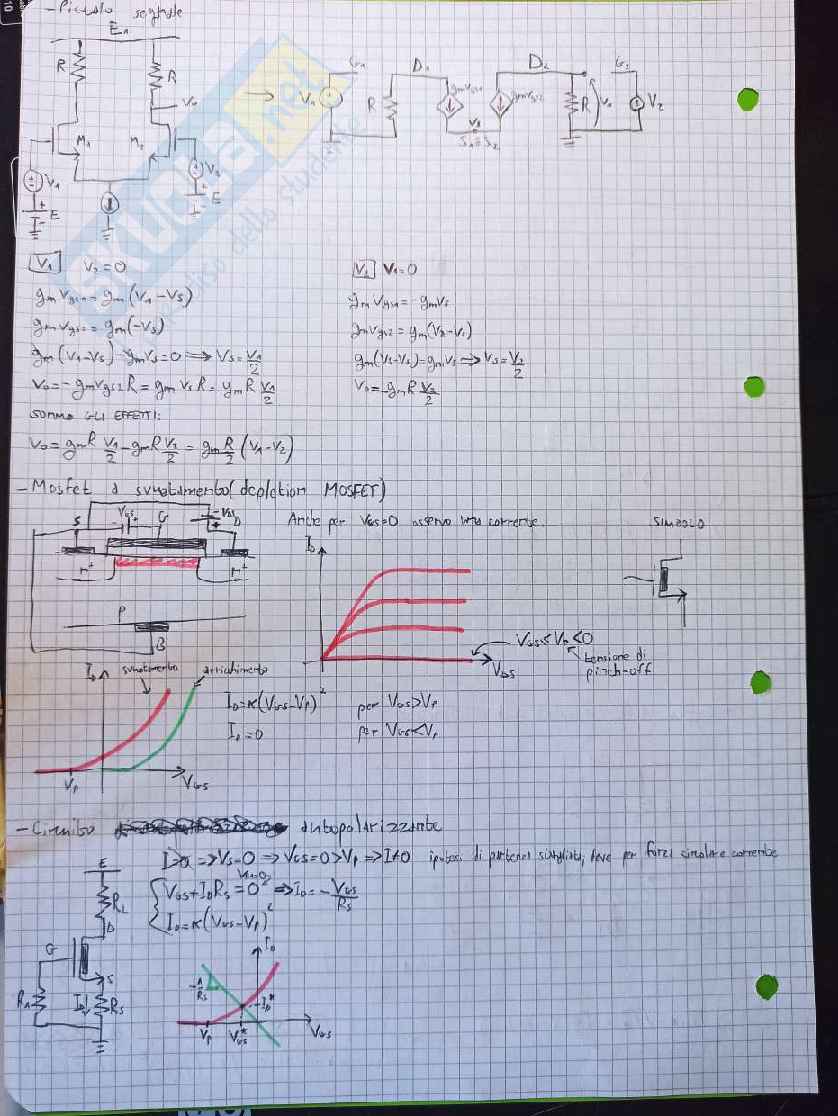 - Piccolo segnale
E₁
R
R
V₀
M₁
M₂
V₁
E
V₂
E
G₁
D₁
D₂
G₂
V₁
R
gmVgs1
gmVgs2
Vs
S₁=S₂
R
V₀
V₂
SKUOLA.net
paradiso dello studente
V₁ V₂=0
gm Vgs1 = gm (V₁-Vs)
gm Vgs2 = gm(-Vs)
gm (V₁-Vs) - gmVs=0 ⟹ Vs=V₁/2
V₀=-gmVgs2 R = gm Vs R = gm R V₁/2
SOMMO GLI EFFETTI:
V₀=gmR V₁/2 - gmR V₂/2 = gm R/2 (V₁-V₂)
V₂ V₁=0
gm Vgs1 = -gmVs
gm Vgs2 = gm(V₂-Vs)
gm(V₂-Vs)=gm Vs ⟹ Vs=V₂/2
V₀=-gmR V₂/2
- Mosfet a svuotamento (depletion MOSFET)
Anche per VGS=0 osservo una corrente.
SIMBOLO
S
VGS
G
VDS
D
n⁺
n⁺
P
B
ID
VDS
VGS≤Vp<0
tensione di
pinch-off
ID
svuotamento
arricchimento
Vp
VGS
ID=K(VGS-Vp)² per VGS>Vp
ID=0 per VGS<Vp
- Circuito autopolarizzante
E
RL
D
G
S
RA
ID
RS
I=0 ⟹ VS=0 ⟹ VGS=0>Vp ⟹ I≠0 ipotesi di partenza sbagliata, deve per forza circolare corrente
VGS+IDRS=0 ⟹ ID=-VGS/RS
ID=K(VGS-Vp)²
ID
-1/RS
ID*
Vp
VGS*
VGS